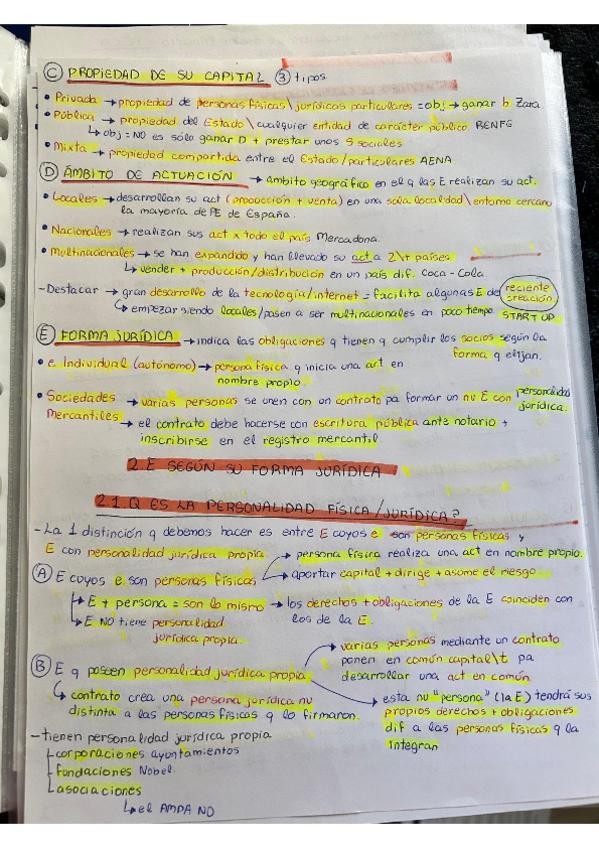 C PROPIEDAD DE SU CAPITAL 3 tipos
• Privada → propiedad de personas físicas\jurídicas particulares = obj → ganar b Zara.
• Pública → propiedad del Estado\cualquier entidad de carácter público RENFE
↳ obj = NO es sólo ganar D + prestar unos S sociales
• Mixta → propiedad compartida entre el Estado/particulares AENA
D ÁMBITO DE ACTUACIÓN → ámbito geográfico en el q las E realizan su act.
• Locales → desarrollan su act (producción + venta) en una sola localidad\entorno cercano
la mayoría de PE de España.
• Nacionales → realizan sus act x todo el país Mercadona.
• Multinacionales → se han expandido y han llevado su act a 2\+ países.
↳ vender + producción/distribución en un país dif. Coca-Cola
- Destacar → gran desarrollo de la tecnología/internet = facilita algunas E de reciente creación
↳ empezar siendo locales/pasen a ser multinacionales en poco tiempo START UP
E FORMA JURÍDICA → indica las obligaciones q tienen q cumplir los socios según la
forma q elijan.
• e Individual (autónomo) → persona física q inicia una act en
nombre propio.
• Sociedades Mercantiles → varias personas se unen con un contrato pa formar un nu E con personalidad jurídica.
→ el contrato debe hacerse con escritura pública ante notario +
inscribirse en el registro mercantil.
2. E SEGÚN SU FORMA JURÍDICA
2.1. Q ES LA PERSONALIDAD FÍSICA/JURÍDICA?
- La 1 distinción q debemos hacer es entre E cuyos e son personas físicas y
E con personalidad jurídica propia.
→ persona física realiza una act en nombre propio.
A E cuyos e son personas físicas
→ aportar capital + dirige + asume el riesgo
↳ E + persona = son lo mismo → los derechos + obligaciones de la E coinciden con
los de la E.
↳ E NO tiene personalidad
jurídica propia.
B E q poseen personalidad jurídica propia
→ varias personas mediante un contrato
ponen en común capital\t pa
desarrollar una act en común
↳ contrato crea una persona jurídica nu
distinta a las personas físicas q lo firmaron.
→ esta nu "persona" (la E) tendrá sus
propios derechos + obligaciones
dif a las personas físicas q la
integran
- tienen personalidad jurídica propia
corporaciones ayontamientos
fundaciones Nobel.
asociaciones
↳ el AMPA NO